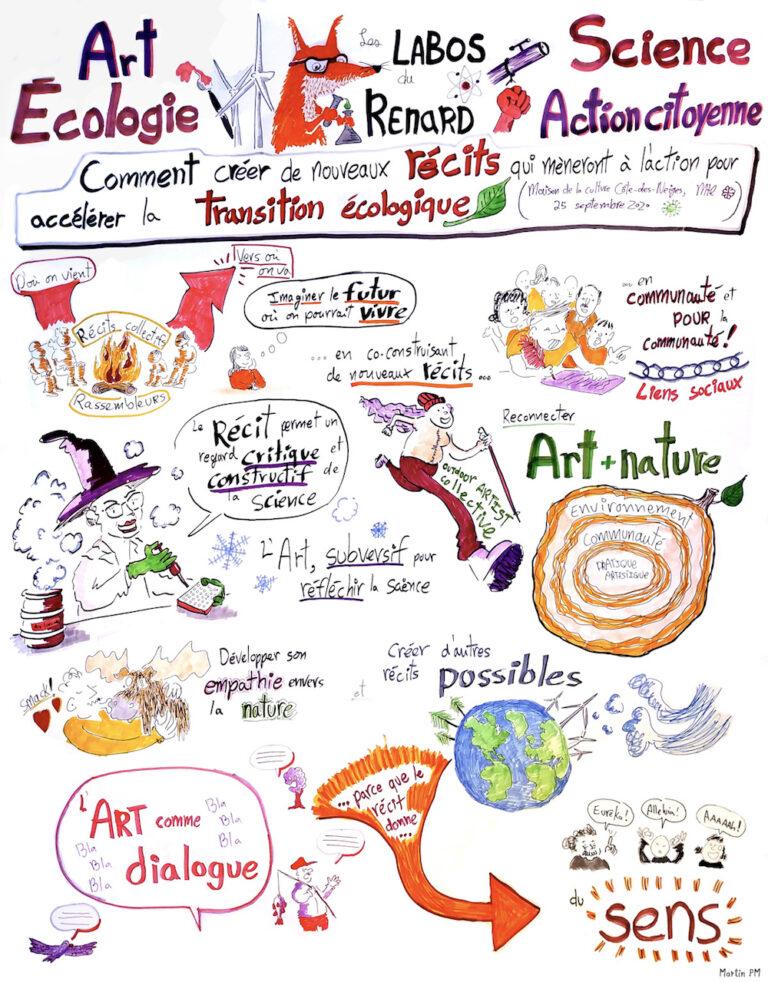 Art
Écologie
Les
LABOS
du
RENARD
Science
Action citoyenne
Comment créer de nouveaux récits qui mèneront à l'action pour
accélérer la Transition écologique
(Maison de la culture Côte-des-Neiges, Mtl
25 septembre 2020)
D'où on vient
Vers où
on va
Récits collectifs
Rassembleurs
Imaginer le futur
où on pourrait vivre
... en co-construisant
de nouveaux récits ...
... en
communauté et
pour la
communauté!
Liens sociaux
Le Récit permet un
regard critique et
constructif de
la science
outdoor ARTIST
collective
Reconnecter
Art + nature
Environnement
Communauté
PRATIQUE
ARTISTIQUE
L'Art, subversif pour
réfléchir la science
Smack!
Développer son
empathie envers
la nature
et
Créer d'autres
récits possibles
L'ART comme
dialogue
Bla
Bla
Bla
Bla
Bla
Bla
... parce que le
récit
donne ...
Eureka!
Alleluia!
AAAAah!
du
sens
Martin PM